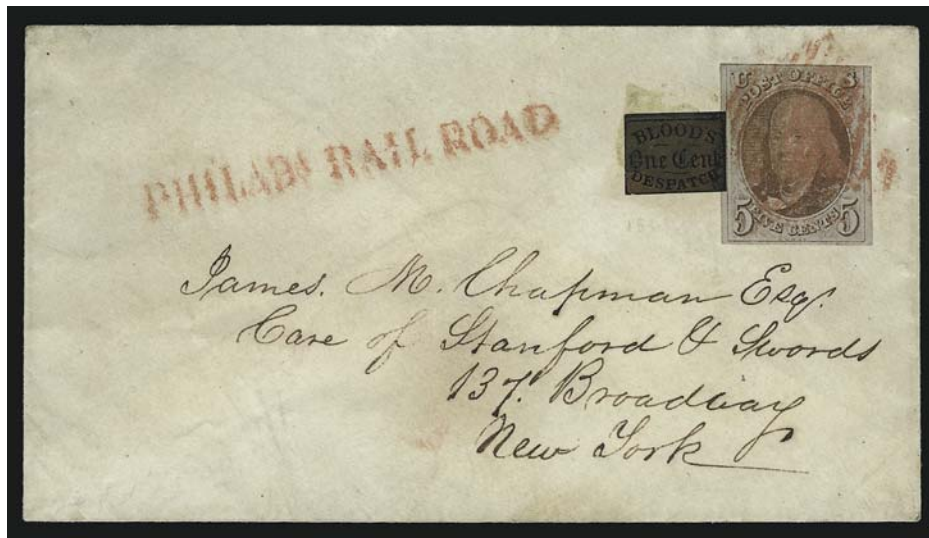 PHILADA RAIL ROAD
BLOOD'S
One Cent
DESPATCH
U S
POST OFFICE
5 FIVE CENTS 5
James. M. Chapman Esqr.
Care of Stanford & Swords
137. Broadway
New York